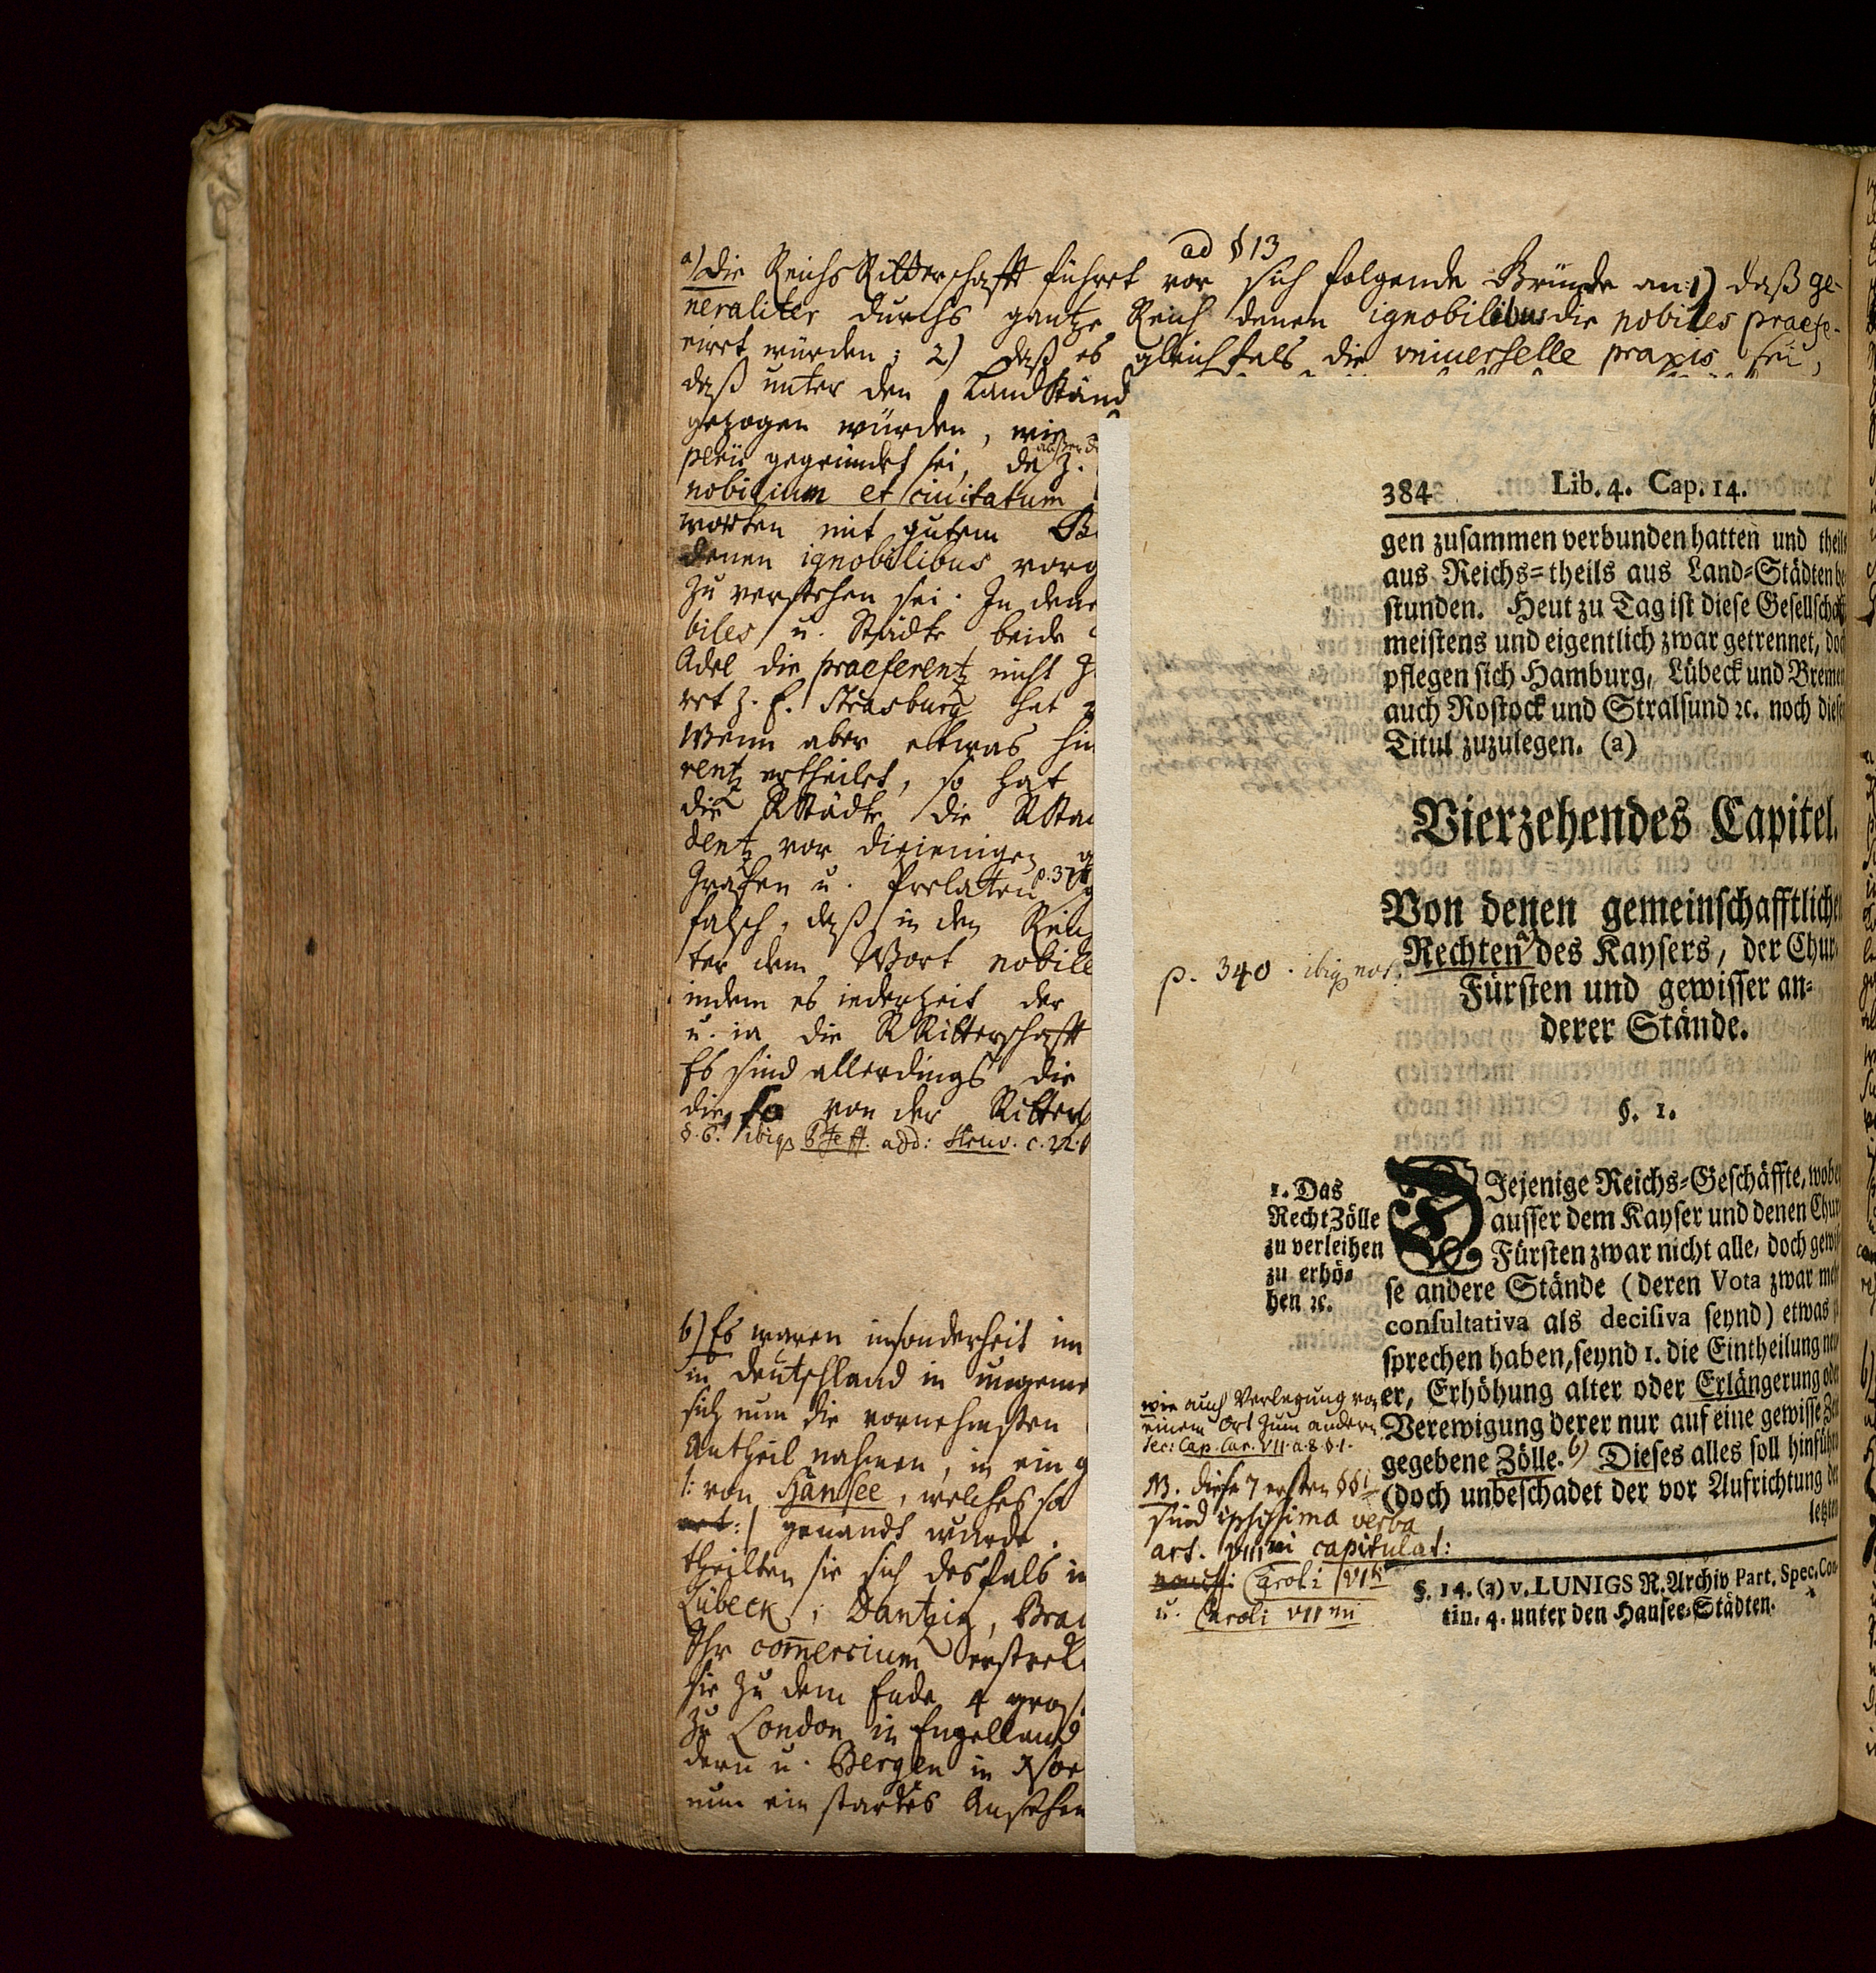 ad § 13
a) Die ReichsRitterschafft führet vor sich folgende Gründe an: 1) daß ge-
neraliter durchs gantze Reich denen ignobilibus die nobiles praefe-
rirt würden; 2) daß es gleichfals die vniuerselle praxis sei,
daß unter den Landständ
gezogen würden, wie
gegründet sei, da z.
nobilium et ciuitatum
worten mit gutem
denen ignobilibus vorg
zu verstehen sei. In dene
biles u. Städte beide
Adel die praeferentz nicht
ret z. E. Strasburg hat
Wenn aber ettwas hin
rentz ertheilet, so hat
die RStädte die RSta
dentz vor diejenigen
Grafen u. Prelaten p. 37
falsch, daß in den Rei
ter dem Wort nobile
indem es jederzeit der
u. ia die RRitterschafft
Es sind allerdings die
die so von der Ritter
§. 6. ibiq Pfeff. add: Struv. c. 22.
b) Es waren insonderheit im
in Deutschland in ungeme
sich nun die vornehmsten
Antheil nahmen, in ein
/: von Hansee, welches so
:/ genandt wurde.
theilten sie sich desfals in
Lübeck, Dantzig, Bra
Ihr commercium erstreck
sie zu dem Ende 4 gros
zu London in Engelland
dern u. Bergen in Nor
nun ein starckes Ansehen
384 Lib. 4. Cap. 14.
gen zusammen verbunden hatten und theils
aus Reichs-theils aus Land-Städten be
stunden. Heut zu Tag ist diese Gesellschaff
meistens und eigentlich zwar getrennet, doch
pflegen sich Hamburg, Lübeck und Bremen
auch Rostock und Stralsund ꝛc. noch diesen
Titul zuzulegen. (a)
Vierzehendes Capitel.
Von denen gemeinschafftlichen
Rechten a) des Kaysers, der Chur-
Fürsten und gewisser an-
derer Stände.
p. 340. ibiq not.
§. 1.
1. Das
Recht Zölle
zu verleihen
zu erhö-
hen ꝛc.
DIejenige Reichs-Geschäffte, wobey
ausser dem Kayser und denen Chur
Fürsten zwar nicht alle, doch gewis
se andere Stände (deren Vota zwar mehr
consultativa als decisiva seynd) etwas zu
sprechen haben, seynd 1. die Eintheilung neu
er, Erhöhung alter oder Erlängerung oder
Verewigung derer nur auf eine gewisse Zeit
gegebene Zölle. b) Dieses alles soll hinführo
(doch unbeschadet der vor Aufrichtung der
letzten
wie auch Verlegung von
einem Ort zum andern
sec: Cap. Car. VII. a. 8. §. 1.
NB. diese 7 ersten §§i
sind ipsissima verba
art. VIIIui capitulat:
Caroli VIti
u. Caroli VIImi
§. 14. (a) v. LUNIGS R. Archiv Part. Spec. Con-
tin. 4. unter den Hansee-Städten.